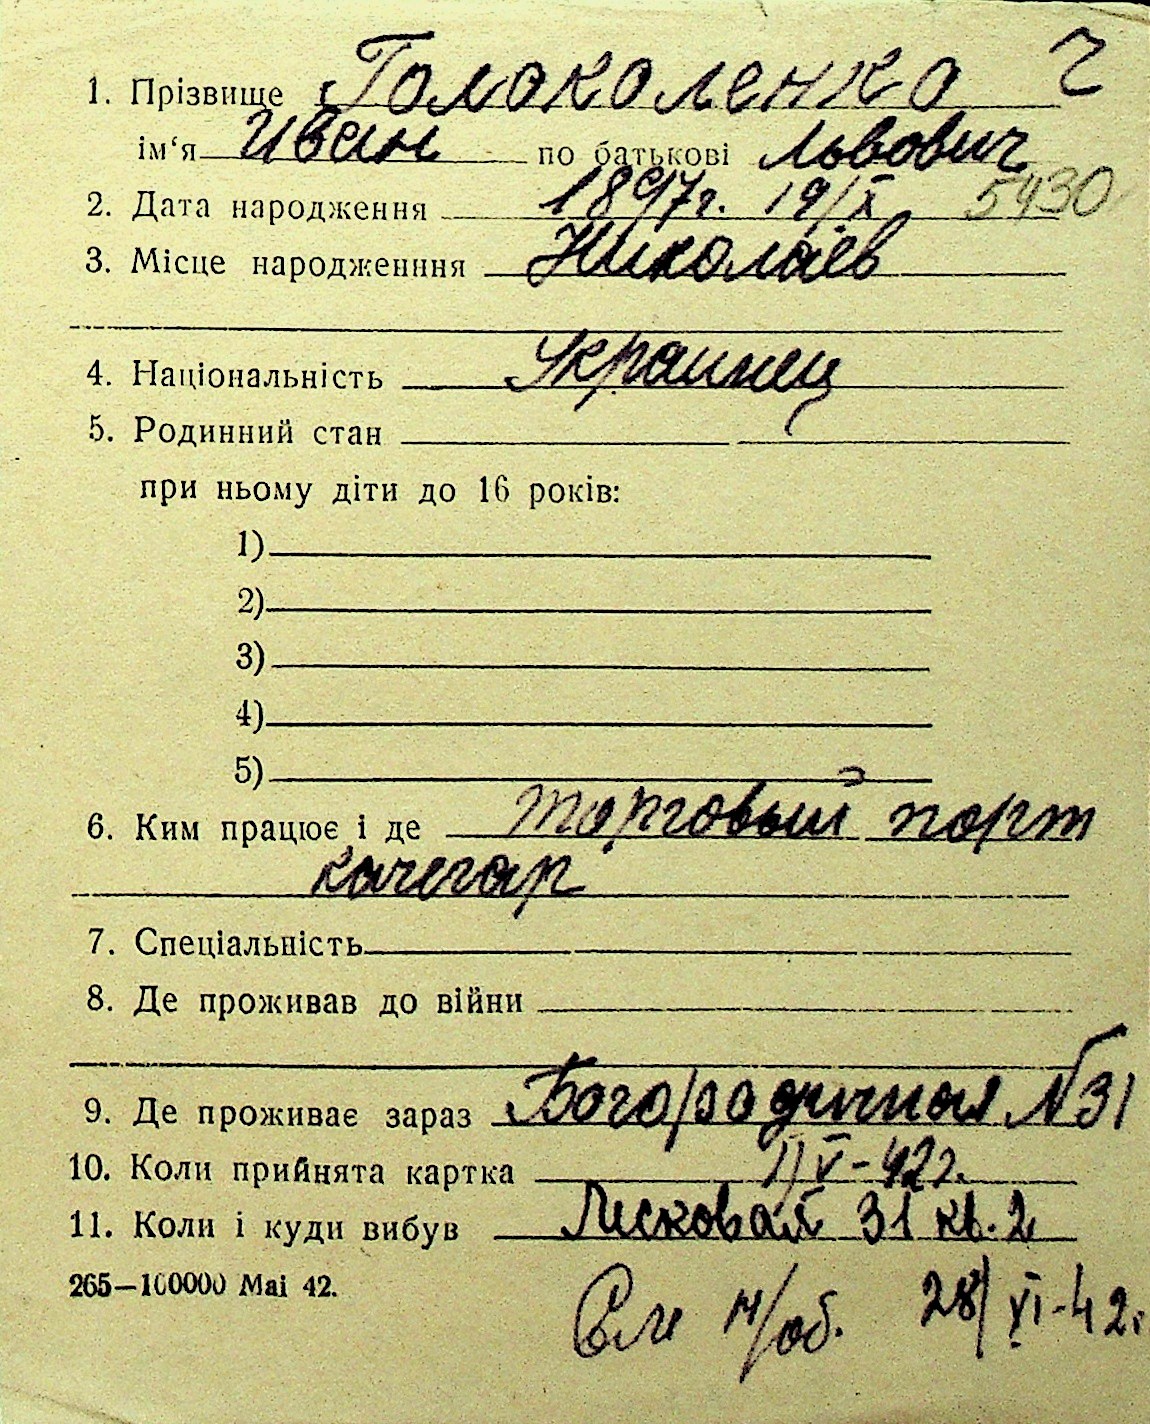 1. Прізвище Голоколенко
ім‘я Иван по батькові Львович
2. Дата народження 1897г. 19/X 5430
3. Місце народженння Николаев
4. Національність Украинец
5. Родинний стан
при ньому діти до 16 років:
1)
2)
3)
4)
5)
6. Ким працює і де торговый порт
качегар
7. Спеціальність
8. Де проживав до війни
9. Де проживає зараз Богородичная №31
10. Коли прийнята картка V-42г.
11. Коли і куди вибув 31 кв. 2
265—100000 Mai 42.
н/об. 28/XI-42г.